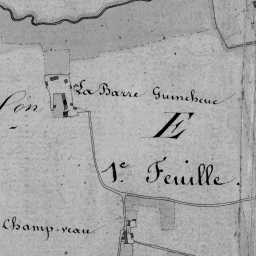 La Barre Guincheue
E
1e. Feuille.
Champ-veau